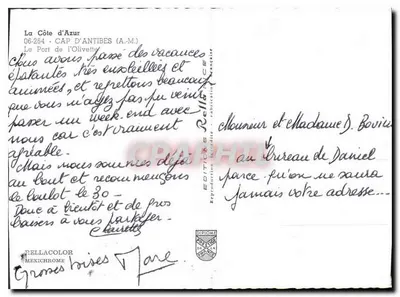 La Côte d'Azur
06-264 - CAP D'ANTIBES (A.-M.)
Le Port de l'Olivette
Nous avons passé des vacances
épatantes très ensoleillées et
animées, et regrettons beaucoup
que vous n'ayez pas pu venir
passer un week end avec
nous car c'est vraiment
agréable.
Mais nous sommes déjà
au bout et recommençons
le boulot le 30 -
Donc à bientôt et de gros
baisers à vous partager.
Grosses bises
EDITIONS Rella NICE
Monsieur et Madame D.
au bureau de Daniel
parce qu'on ne saura
jamais votre adresse...
HELLACOLOR
MEXICHROME